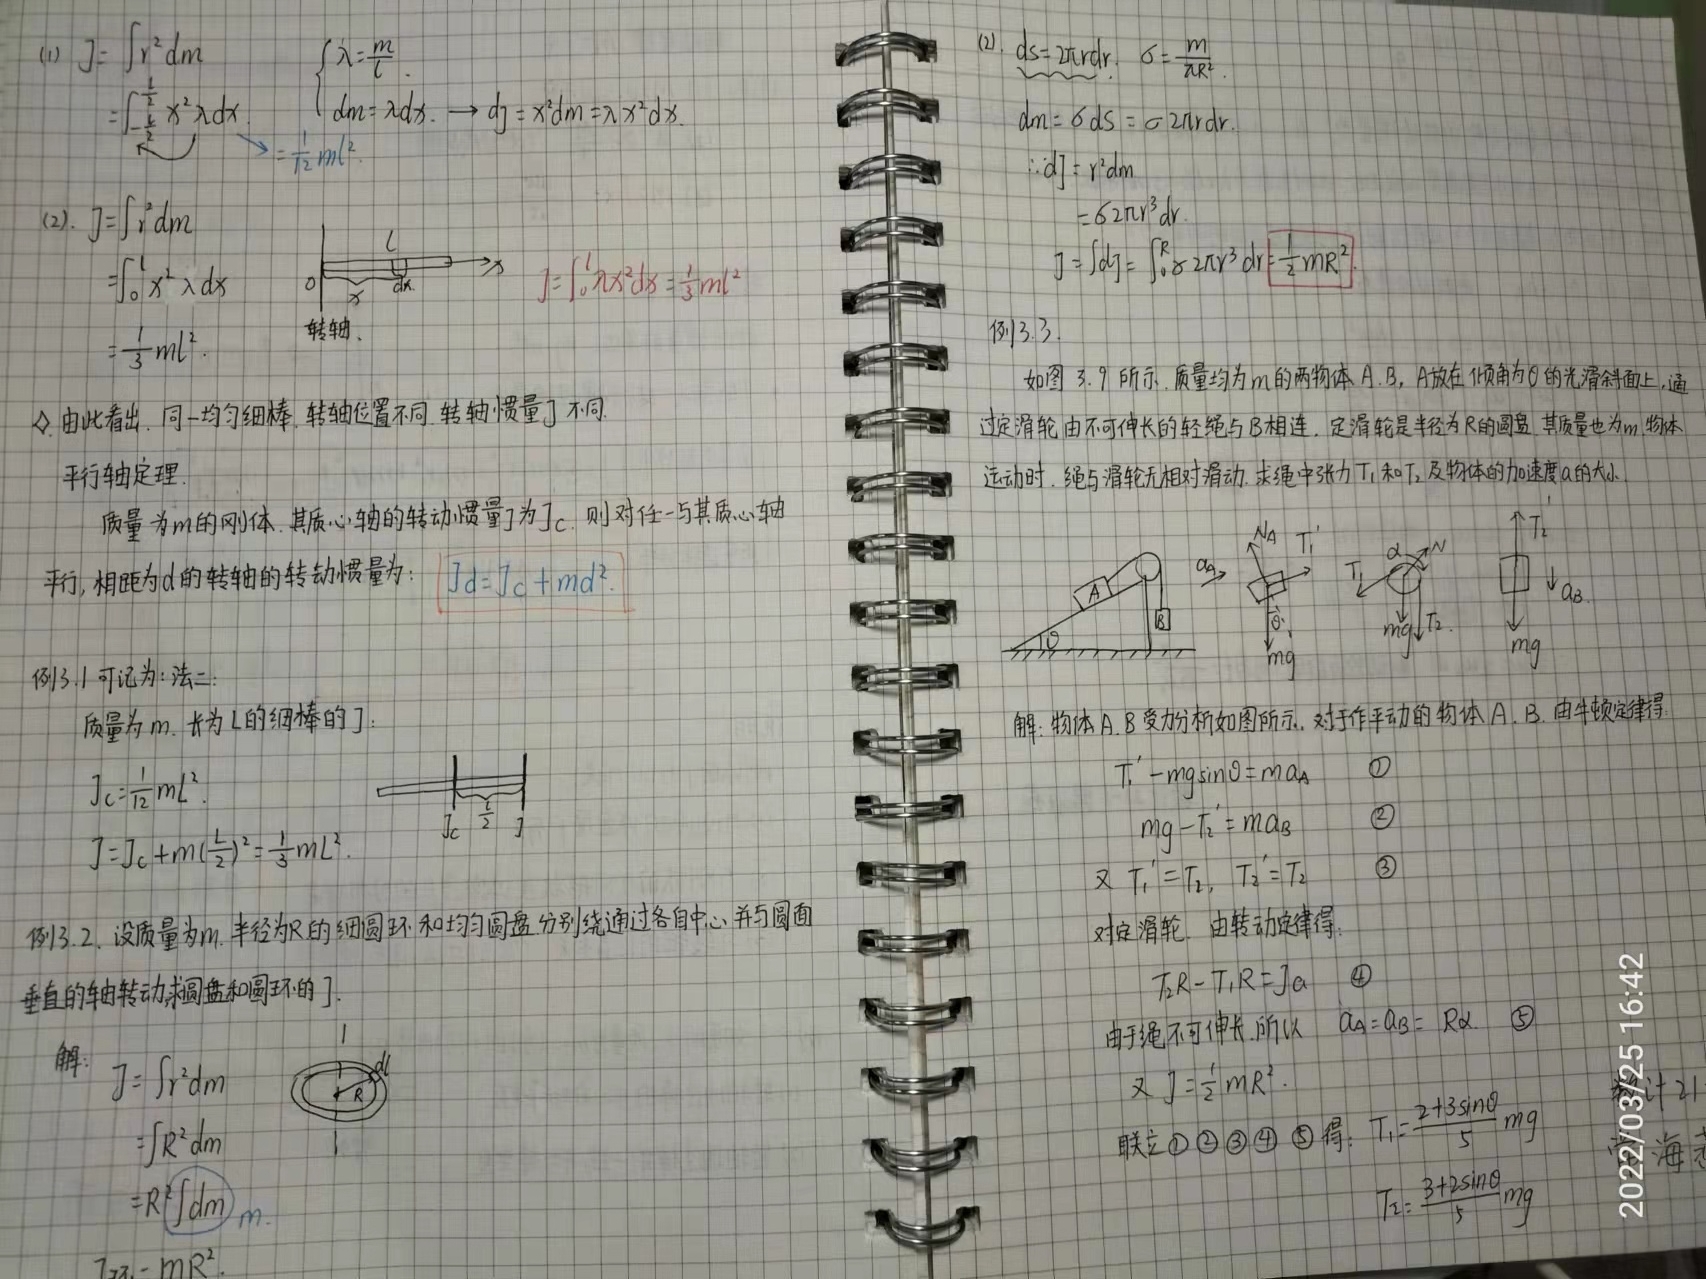 (1) J = ∫r²dm
{ λ = m/l.
= ∫_{-L/2}^{L/2} x²λdx
dm = λdx. → dJ = x²dm = λx²dx.
= 1/12 ml².
(2). J = ∫r²dm
= ∫₀ᴸ x²λdx
= 1/3 mL².
L
O x dx x
转轴.
J = ∫₀ᴸ λx²dx = 1/3 ml²
◇. 由此看出. 同一均匀细棒. 转轴位置不同. 转轴惯量J不同.
平行轴定理.
质量为m的刚体. 其质心轴的转动惯量J为Jc. 则对任一与其质心轴
平行, 相距为d的转轴的转动惯量为: Jd = Jc + md².
例3.1 可记为: 法二:
质量为m. 长为L的细棒的J:
Jc = 1/12 mL².
Jc L/2 J
J = Jc + m(L/2)² = 1/3 mL².
例3.2. 设质量为m. 半径为R的细圆环和均匀圆盘分别绕通过各自中心并与圆面
垂直的轴转动,求圆盘和圆环的J.
解: J = ∫r²dm
dl
R
= ∫R²dm
= R²∫dm m.
= mR².
(2). ds = 2πrdr. σ = m/πR².
dm = σds = σ2πrdr.
∴dJ = r²dm
= σ2πr³dr.
J = ∫dJ = ∫₀ᴿ σ2πr³dr = 1/2 mR².
例3.3.
如图3.9所示. 质量均为m的两物体A.B, A放在倾角为θ的光滑斜面上, 通
过定滑轮由不可伸长的轻绳与B相连. 定滑轮是半径为R的圆盘. 其质量也为m. 物体
运动时. 绳与滑轮无相对滑动. 求绳中张力T₁和T₂及物体的加速度a的大小.
A B θ
aA NA T₁' θ mg
T₁ α N mg T₂.
T₂' aB. mg
解: 物体A.B受力分析如图所示. 对于作平动的物体A.B. 由牛顿定律得
T₁' - mgsinθ = maA ①
mg - T₂' = maB ②
又 T₁' = T₂, T₂' = T₂ ③
对定滑轮. 由转动定律得:
T₂R - T₁R = Ja ④
由于绳不可伸长.所以 aA = aB = Rα ⑤
又 J = 1/2 mR².
联立①②③④⑤得: T₁ = (2+3sinθ)/5 mg
T₂ = (3+2sinθ)/5 mg
计21
海
2022/03/25 16:42